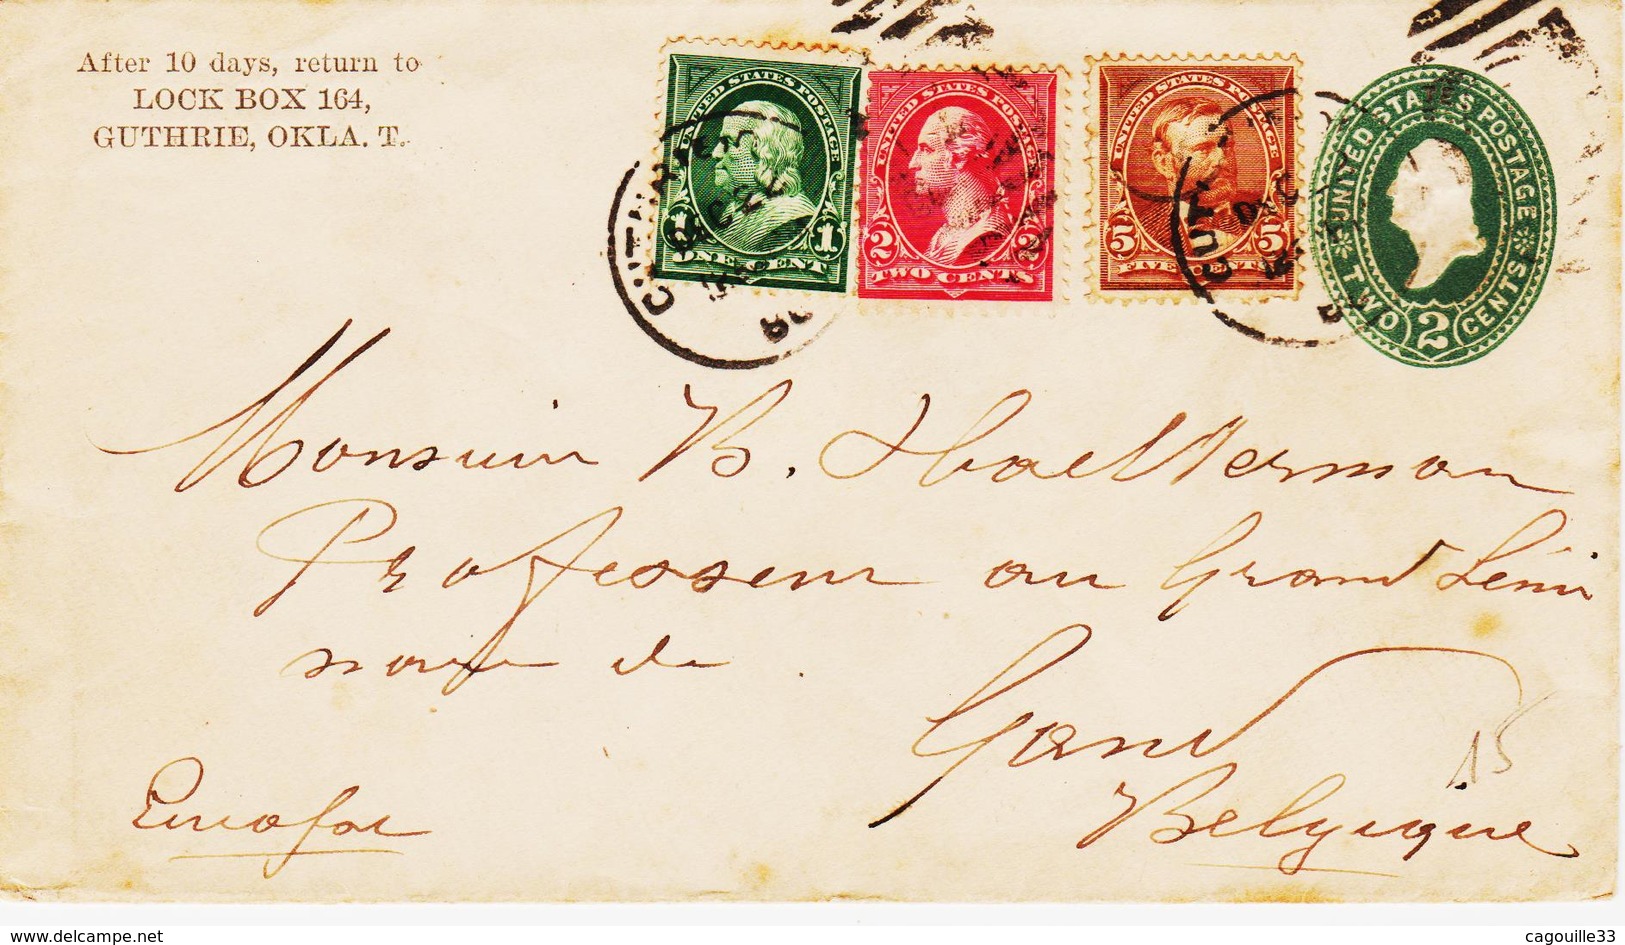 After 10 days, return to
LOCK BOX 164,
GUTHRIE, OKLA. T.
UNITED STATES POSTAGE
1 1
ONE CENT
UNITED STATES POSTAGE
2 2
TWO CENTS
UNITED STATES POSTAGE
5 5
FIVE CENTS
UNITED STATES POSTAGE
TWO 2 CENTS
GUTHRIE
DEC
Monsieur B.
Professeur au Grand Sémi
naire de
Gand
Belgique
15
www.delcampe.net
cagouille33